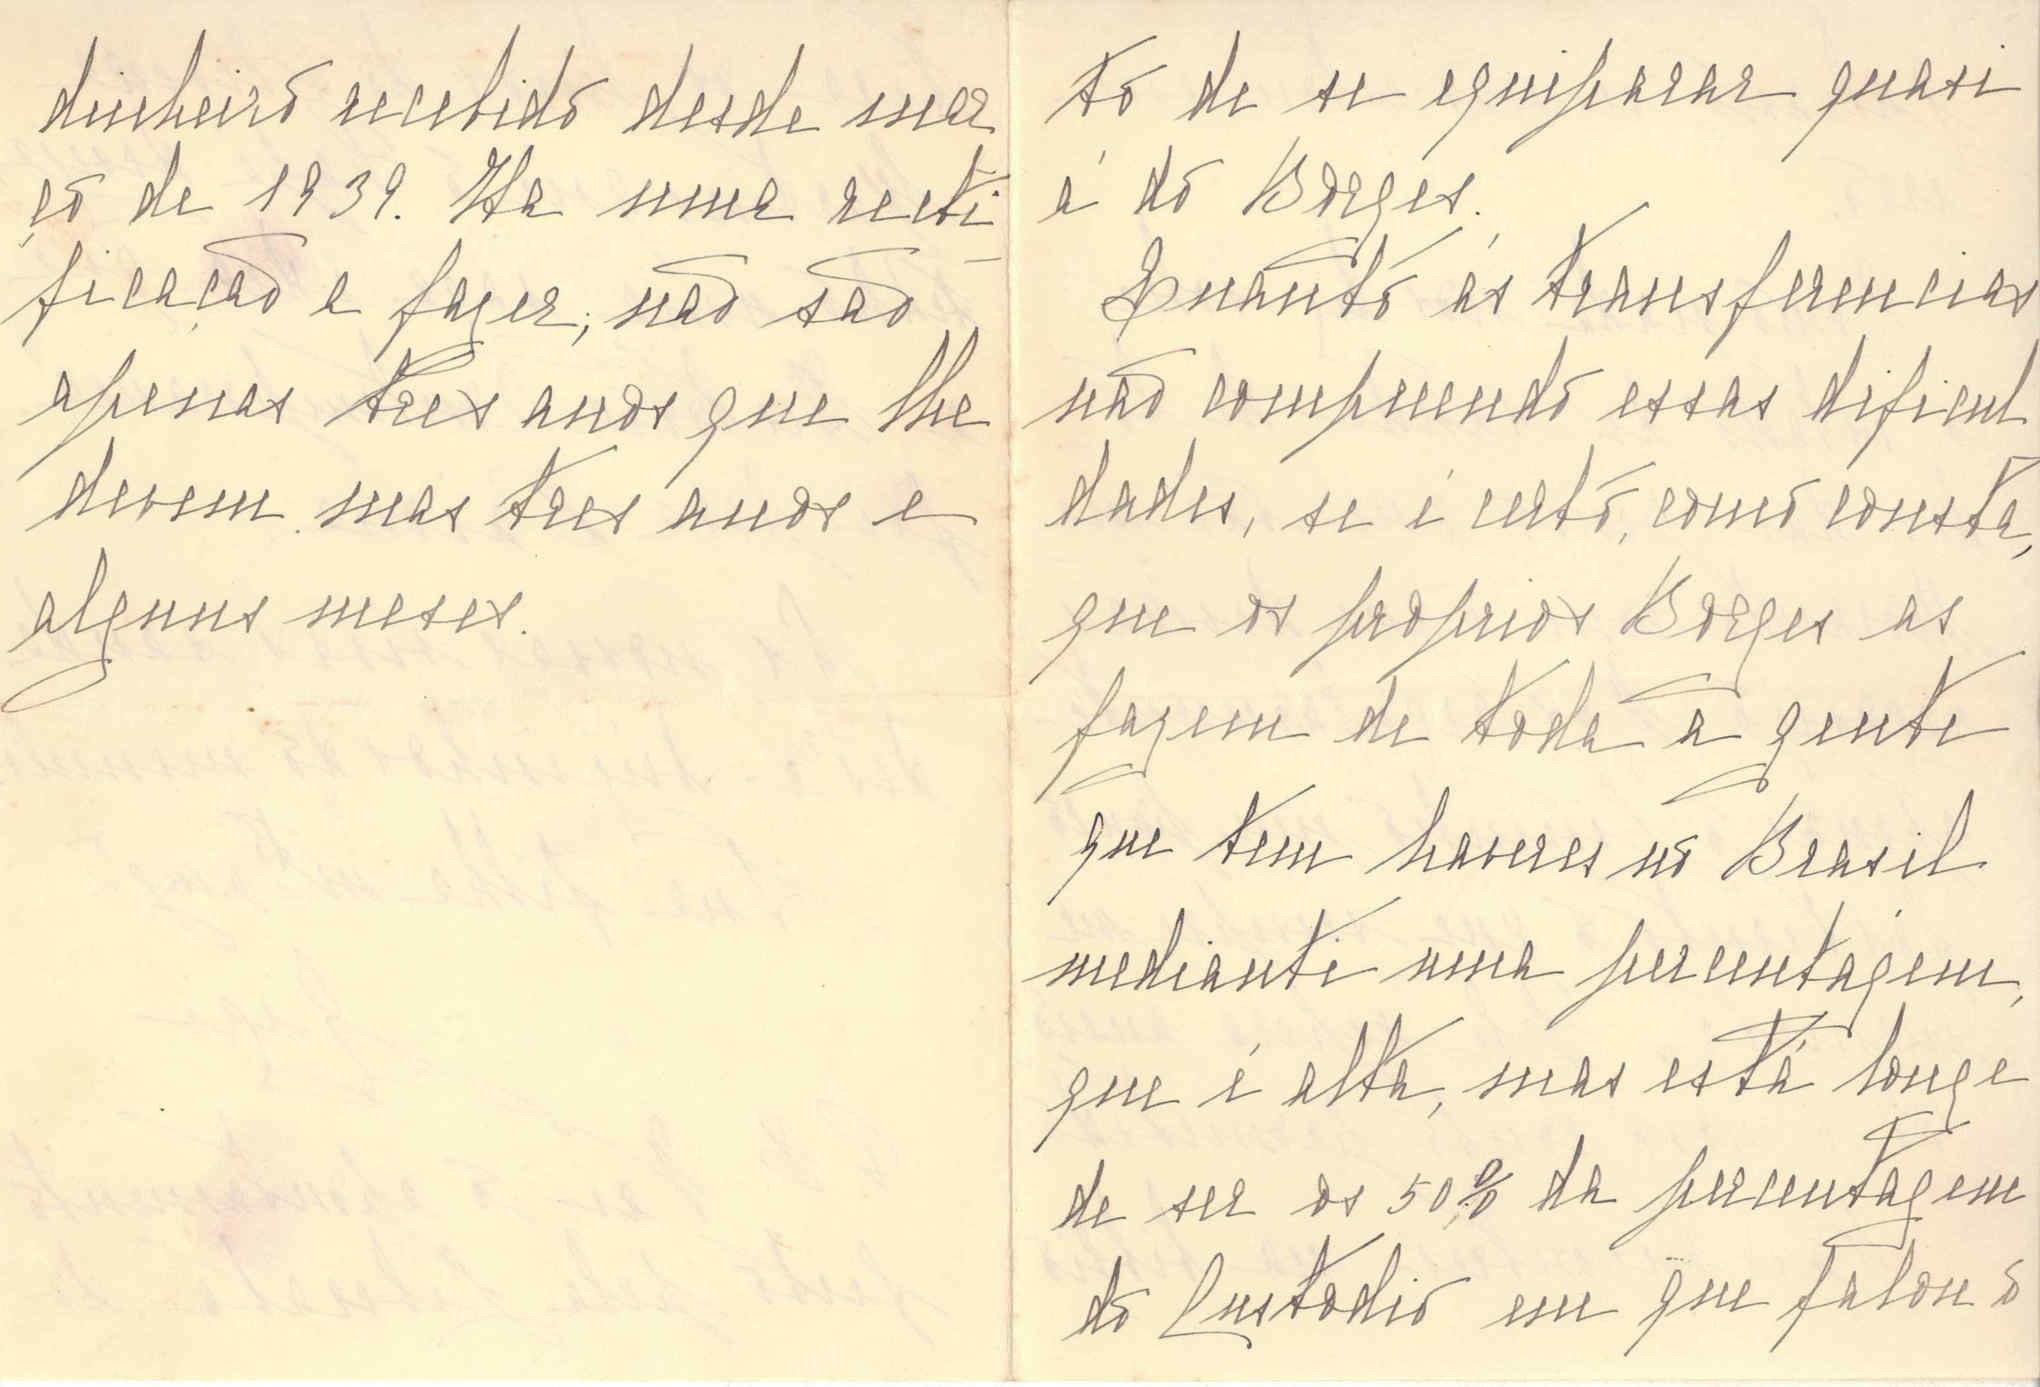 dinheiro recebido desde mar
ço de 1939. Ha uma recti-
ficação a fazer; não são
apenas tres anos que lhe
devem mas tres anos e
alguns meses.
to de se equiparar quasi
á do Borges.
Quanto ás transferencias
não compreendo essas dificul
dades, se é certo, como consta,
que os proprios Borges as
fazem de toda a gente
que tem haveres no Brasil
mediante uma percentagem,
que é alta, mas está longe
de ser os 50% da percentagem
do Custodio em que falou o